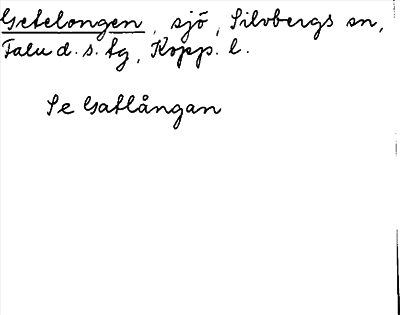 Getelongen, sjö, Silvbergs sn,
Falu d. s. tg, Kopp. l.
Se Gatlångan